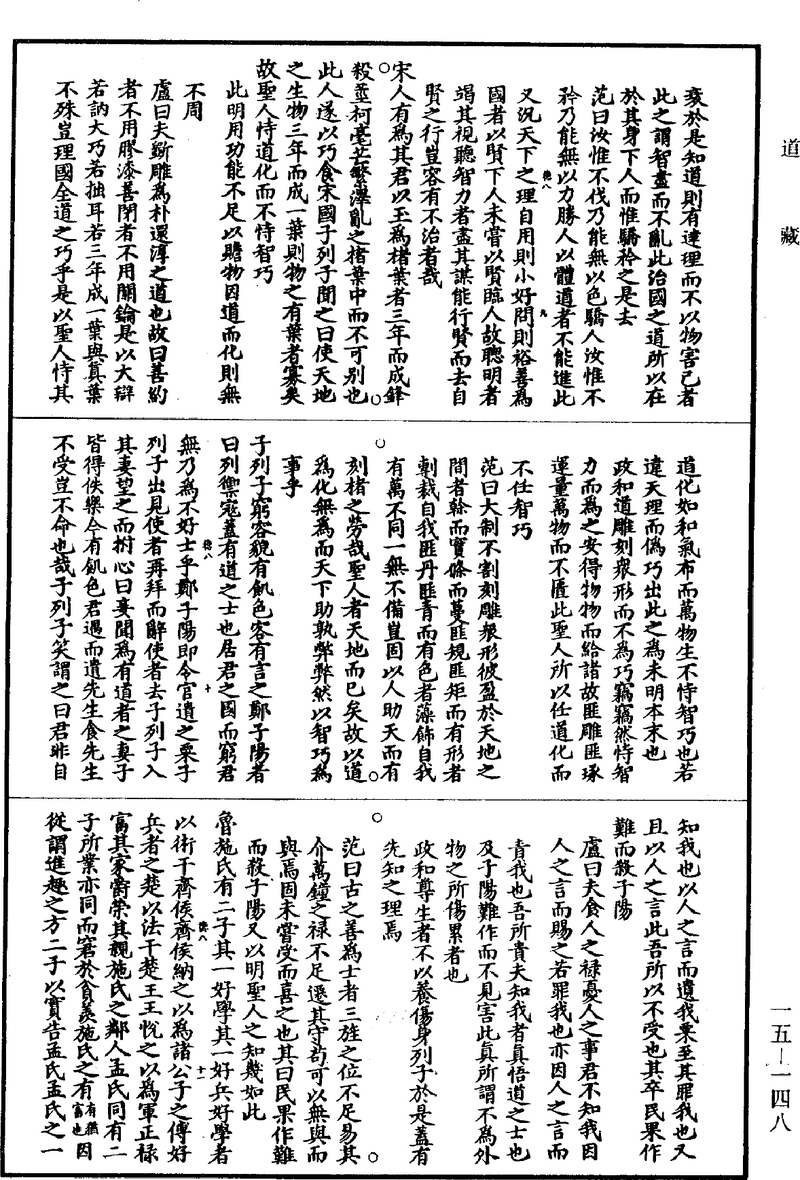 道藏
衮於是知道則有達理而不以物害己者
此之謂智盡而不亂此治國之道所以在
於其身下人而惟驕矜之是去
范曰汝惟不伐乃能無以色驕人汝惟不
矜乃能無以力勝人以體道者不能進此
又況天下之理自用則小好問則裕善為
國者以賢下人未嘗以賢臨人故聰明者
竭其視聽智力者盡其謀能行賢而去自
賢之行豈容有不治者哉
宋人有為其君以玉為楮葉者三年而成鋒
殺莖柯毫芒繁澤亂之楮葉中而不可別也
此人遂以巧食宋國子列子聞之曰使天地
之生物三年而成一葉則物之有葉者寡矣
故聖人恃道化而不恃智巧
此明用功能不足以贍物因道而化則無
不周
盧曰夫斲雕為朴還淳之道也故曰善約
者不用膠漆善閉者不用關鑰是以大辯
若訥大巧若拙耳若三年成一葉與真葉
不殊豈理國全道之巧乎是以聖人恃其
道化如和氣布而萬物生不恃智巧也若
違天理而偽巧出此之為未明本末也
政和道雕刻衆形而不為巧竊竊然恃智
力而為之安得物物而給諸故匪雕匪琢
運量萬物而不匱此聖人所以任道化而
不任智巧
范曰大制不割刻雕衆形彼盈於天地之
間者榦而實條而蔓匪規匪矩而有形者
剸裁自我匪丹匪青而有色者藻飾自我
有萬不同一無不備豈固以人助天而有
刻楮之勞哉聖人者天地而已矣故以道
為化無為而天下助孰弊弊然以智巧為
事乎
子列子窮容貌有飢色客有言之鄭子陽者
曰列禦寇蓋有道之士也居君之國而窮君
無乃為不好士乎鄭子陽即令官遺之粟子
列子出見使者再拜而辭使者去子列子入
其妻望之而拊心曰妾聞為有道者之妻子
皆得佚樂今有飢色君遇而遺先生食先生
不受豈不命也哉子列子笑謂之曰君非自
知我也以人之言而遺我粟至其罪我也又
且以人之言此吾所以不受也其卒民果作
難而殺子陽
盧曰夫食人之祿憂人之事君不知我因
人之言而賜之若罪我也亦因人之言而
責我也吾所貴夫知我者真悟道之士也
及子陽難作而不見害此真所謂不為外
物之所傷累者也
政和尊生者不以養傷身列子於是蓋有
先知之理焉
范曰古之善為士者三旌之位不足易其
介萬鐘之祿不足遷其守苟可以無與而
與焉固未嘗受而喜之也其曰民果作難
而殺子陽又以明聖人之知幾如此
魯施氏有二子其一好學其一好兵好學者
以術干齊侯齊侯納之以為諸公子之傅好
兵者之楚以法干楚王王悅之以為軍正祿
富其家爵榮其親施氏之鄰人孟氏同有二
子所業亦同而窘於貧羨施氏之有有猶富也因
從謂進趣之方二子以實告孟氏孟氏之一
一五—一四八